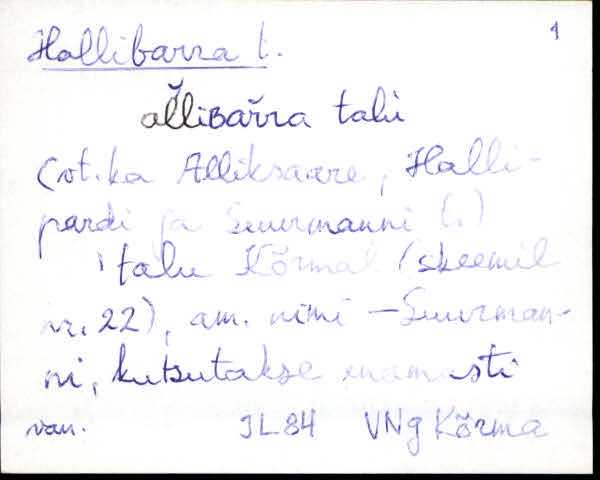 1
Hallibarra t.
al̆liʙar̆ra talu
(vt. ka Alliksaare, Halli-
pardi ja Suurmanni t.)
talu Kõrmal (skeemil
nr. 22), am. nimi – Suurman-
ni, kutsutakse enamasti
van. JL84 VNg Kõrma